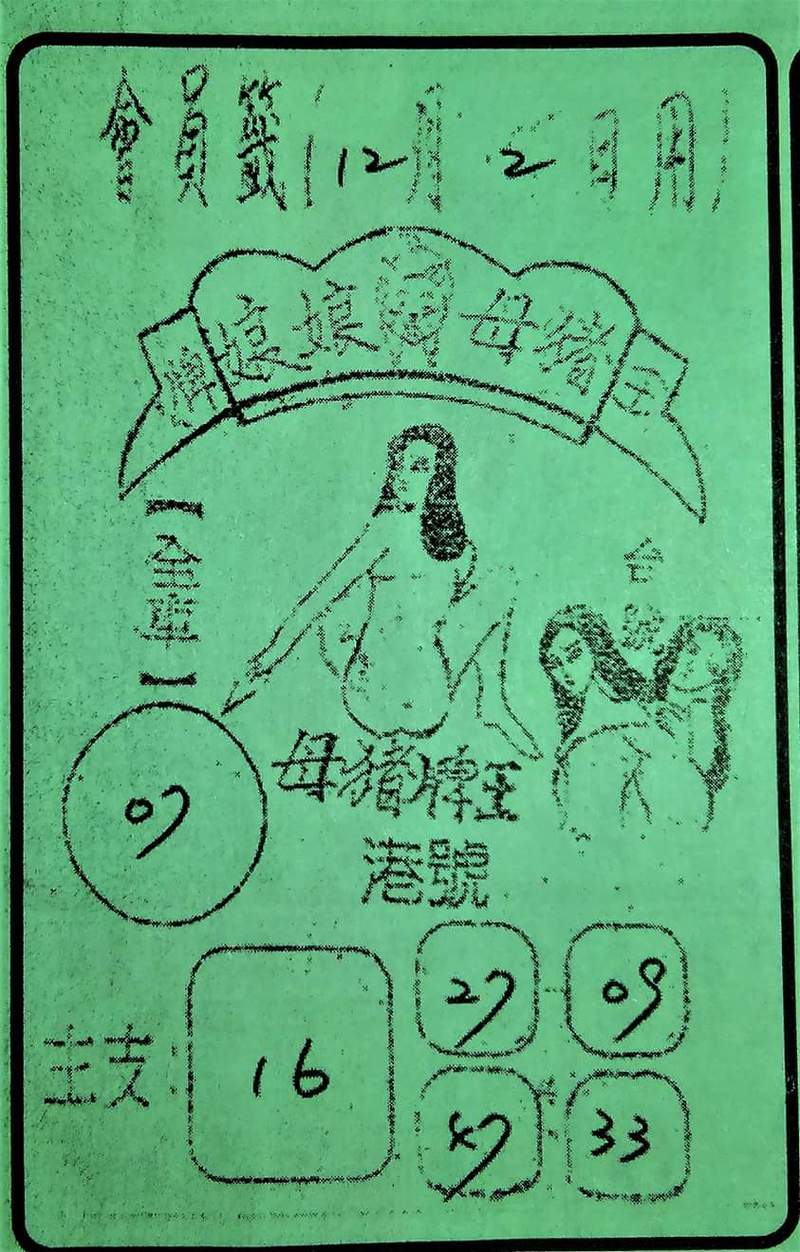 會員籤(12月 2日用)
牌娘娘 母豬王
【全車】
台號
07
母豬牌王
港號
主支: 16
27-09
47 33